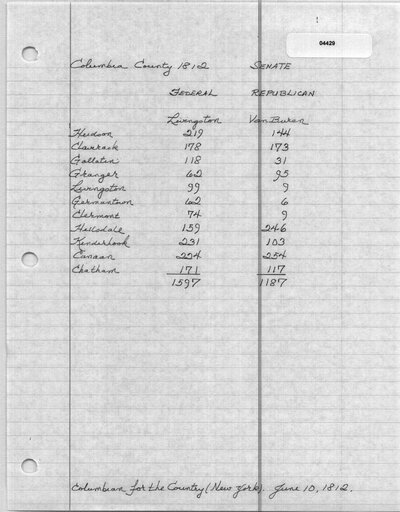 04429
Columbia County 1812 SENATE
FEDERAL REPUBLICAN
Livingston Van Buren
Hudson 219 144
Clavrack 178 173
Gallatin 118 31
Granger 62 95
Livingston 99 9
Germantown 62 6
Clermont 74 9
Hillsdale 159 246
Kinderhook 231 103
Canaan 224 254
Chatham 171 117
1597 1187
Columbian for the Country (New York). June 10, 1812.